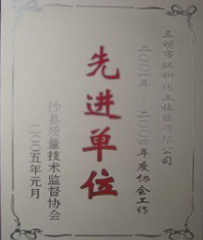 三明市级科化工橡胶有限公司
二〇〇一年 二〇〇四年度协会工作
先进单位
沙县质量技术监督协会
二〇〇五年元月